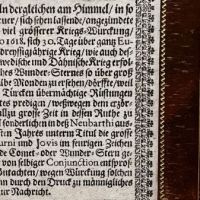 dergleichen am Himmel / in so
ner / sich sehen lassende / angezündete
viel grösserer Kriegs-Würckung /
1618, sich 30. Tage über gantz Eu-
dreyssigjährige Krieg / wie auch de
wedische und Dähnische Krieg erfol-
es Wunder-Sternes so über groß
albe Monden zu ersehen / dörffte / weil
Türcken übermächtige Rüstungen
tes predigen / weßwegen dem erzör-
zu grosse Zeit in dessen Ruthe zu
sonderlichen in deß Neubarthi aus-
ten Jahres unterm Titul die grosse
urni und Jovis im feurigen Zeichen
de Comet- oder Wunder-Stern ge-
von selbiger Conjunction ausproß-
utachten / wegen Würckung solchen
nn durch den Druck zu männigliches
ur Nachricht.